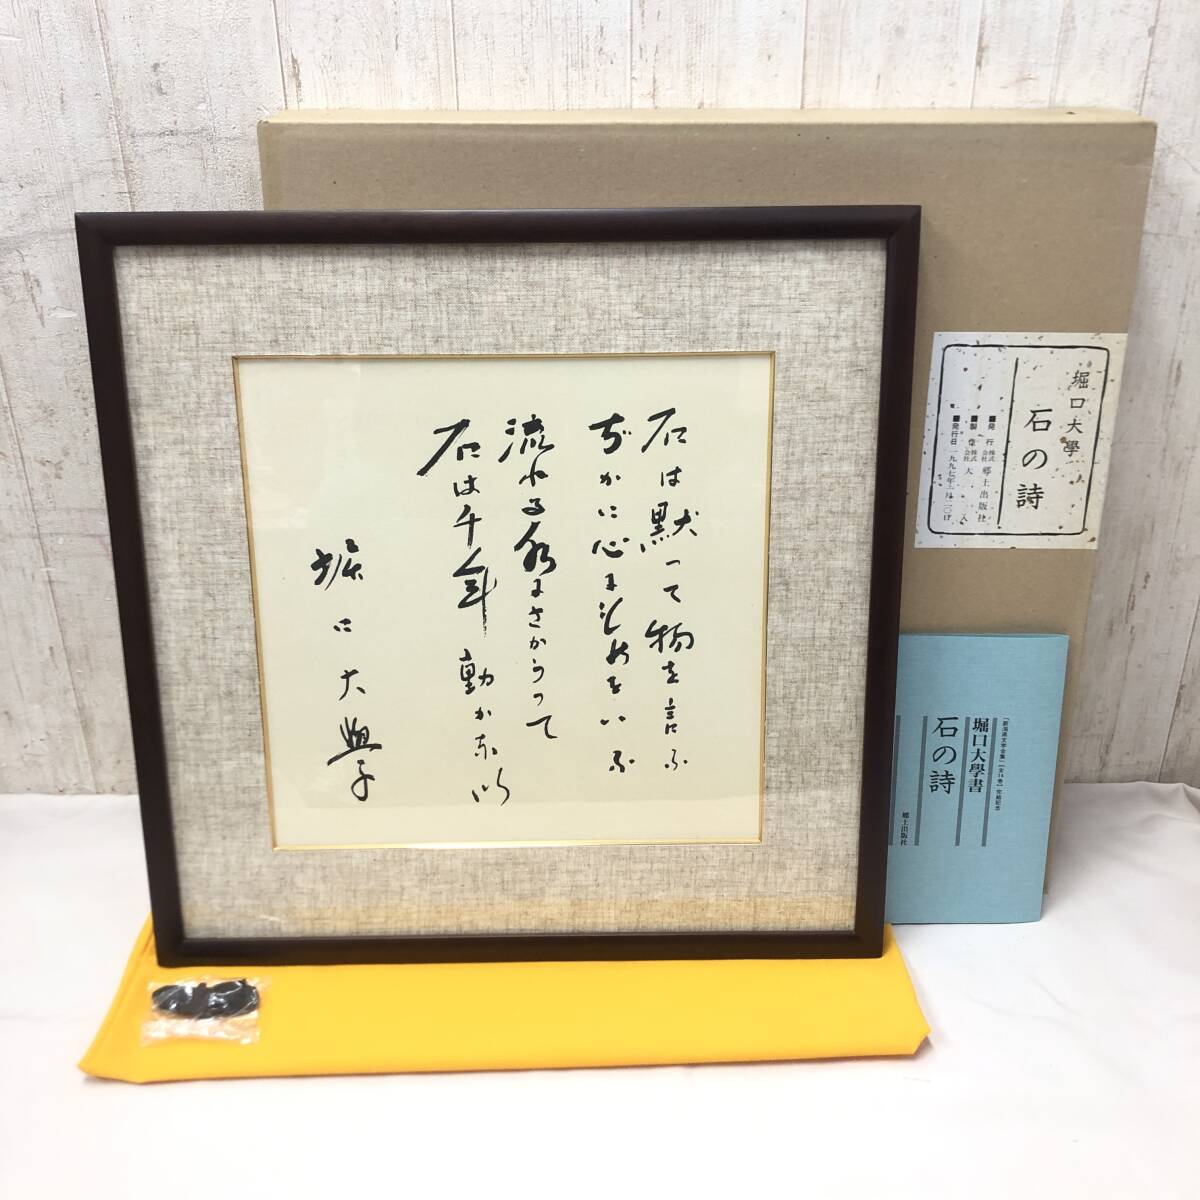 石は黙って物を言ふ
ぢかに心にものをいふ
流れる水にさからって
石は千年動かない
堀口大學
堀口大學
石の詩
■発行 株式会社 郷土出版社
■製作 株式会社 大
■発行日 一九九七年
「新潟県文学全集」(全14巻)完結記念
堀口大學書
石の詩
郷土出版社